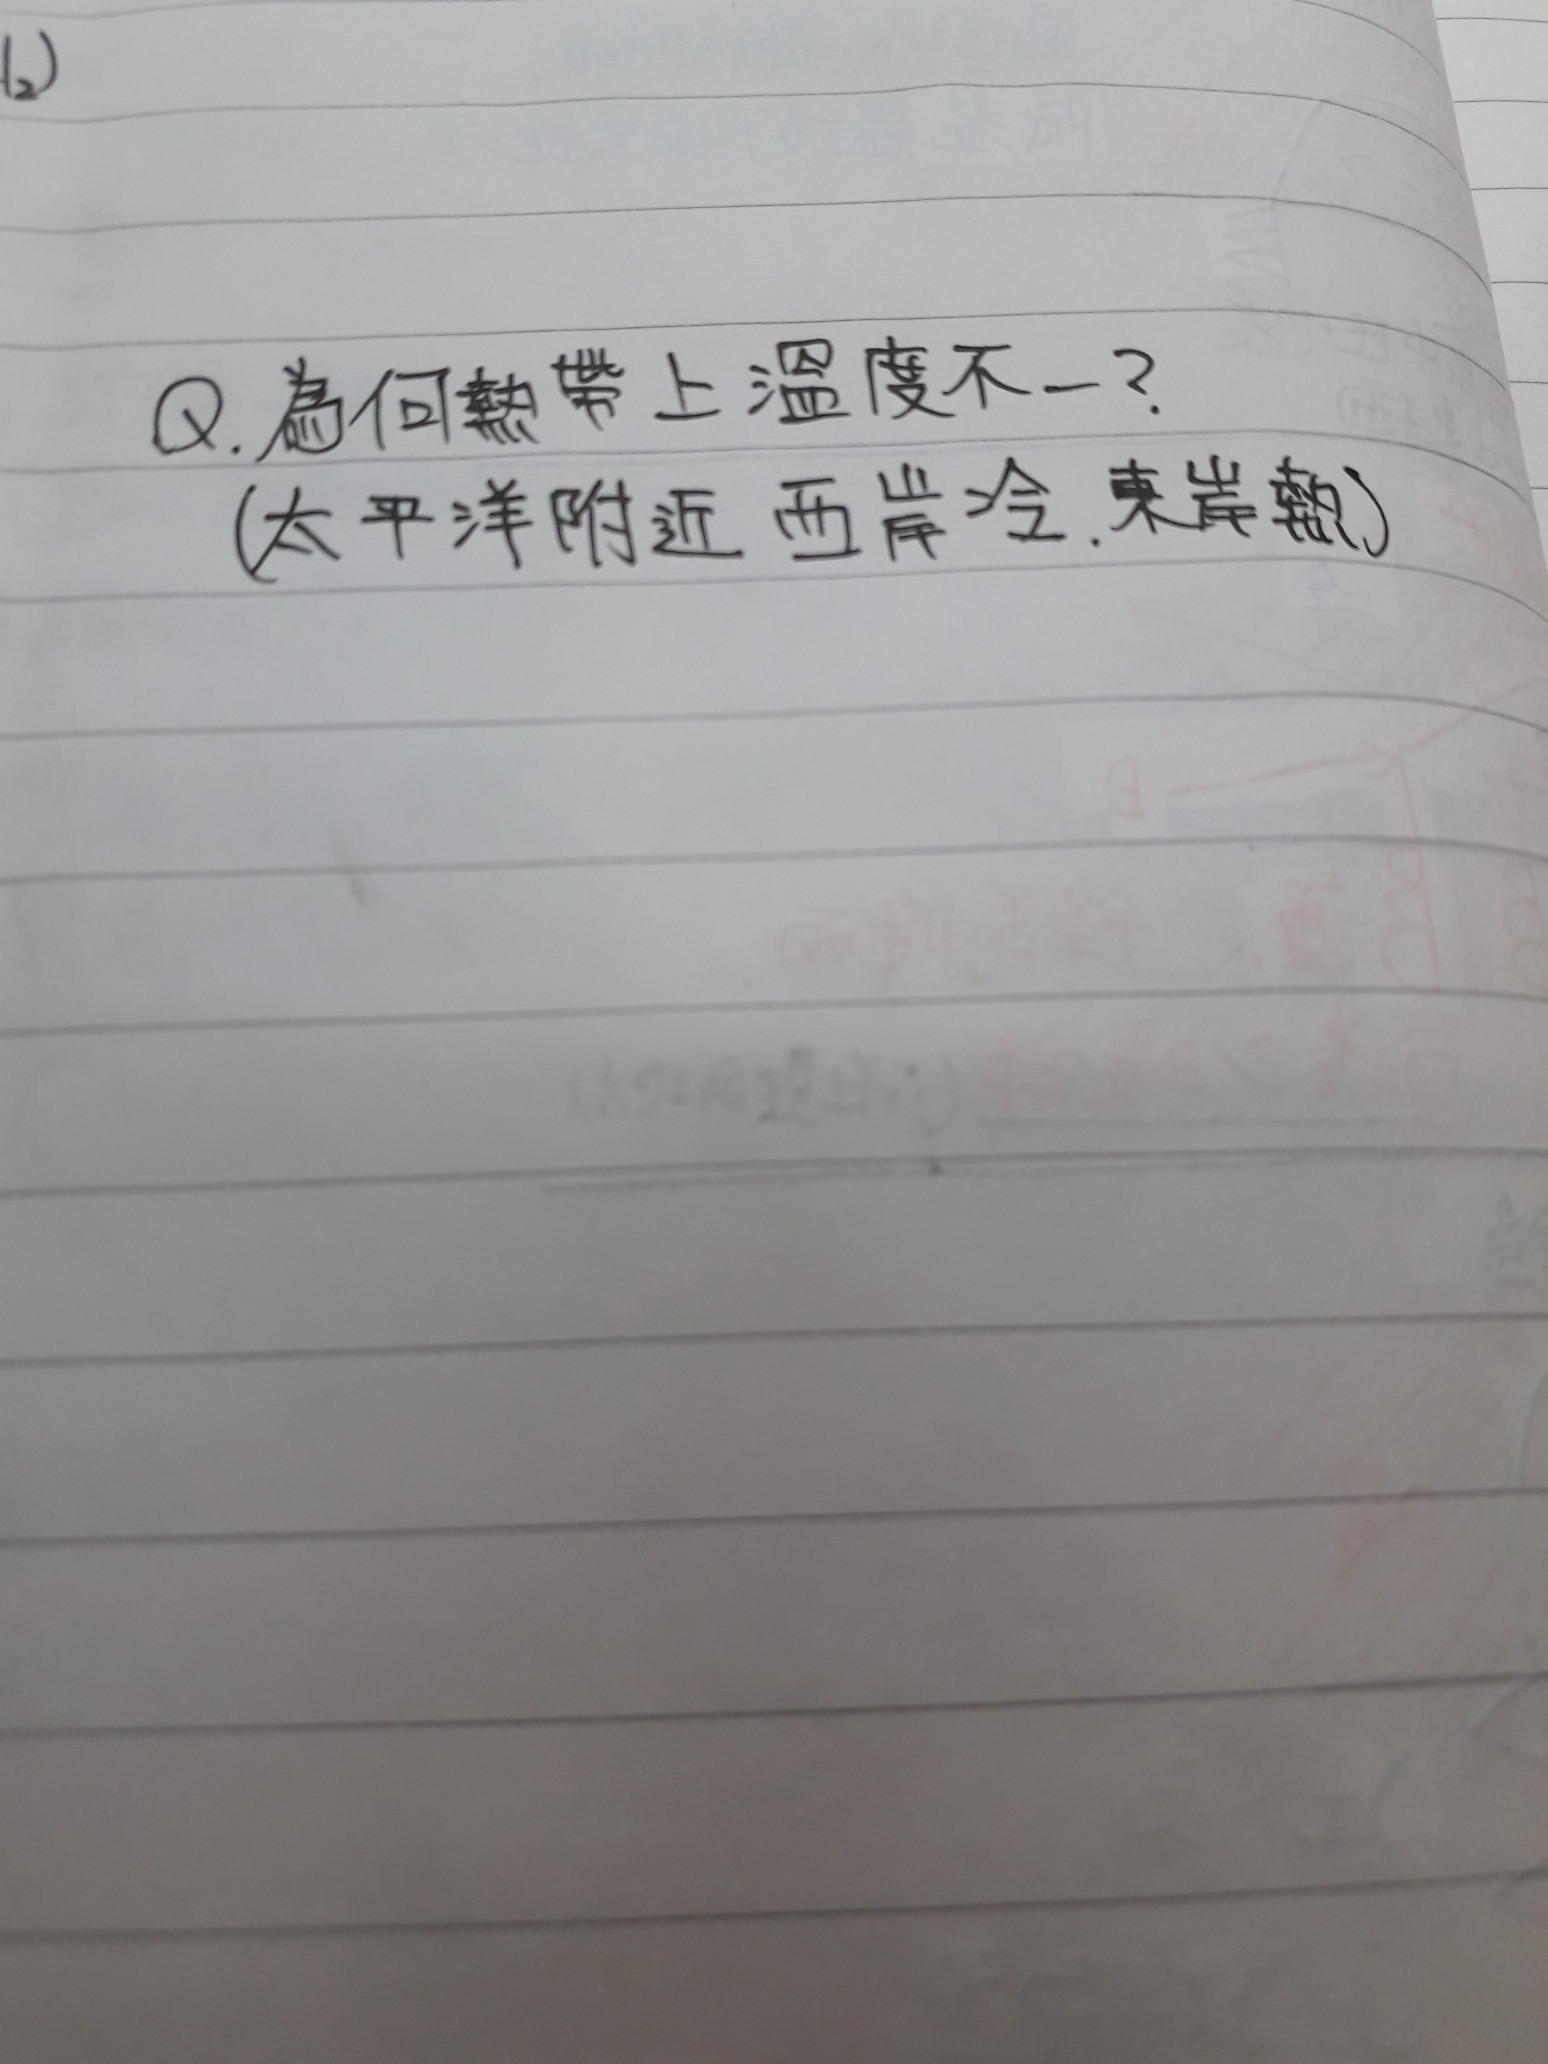 (2)
Q.為何熱帶上溫度不一?
(太平洋附近 西岸冷.東岸熱)